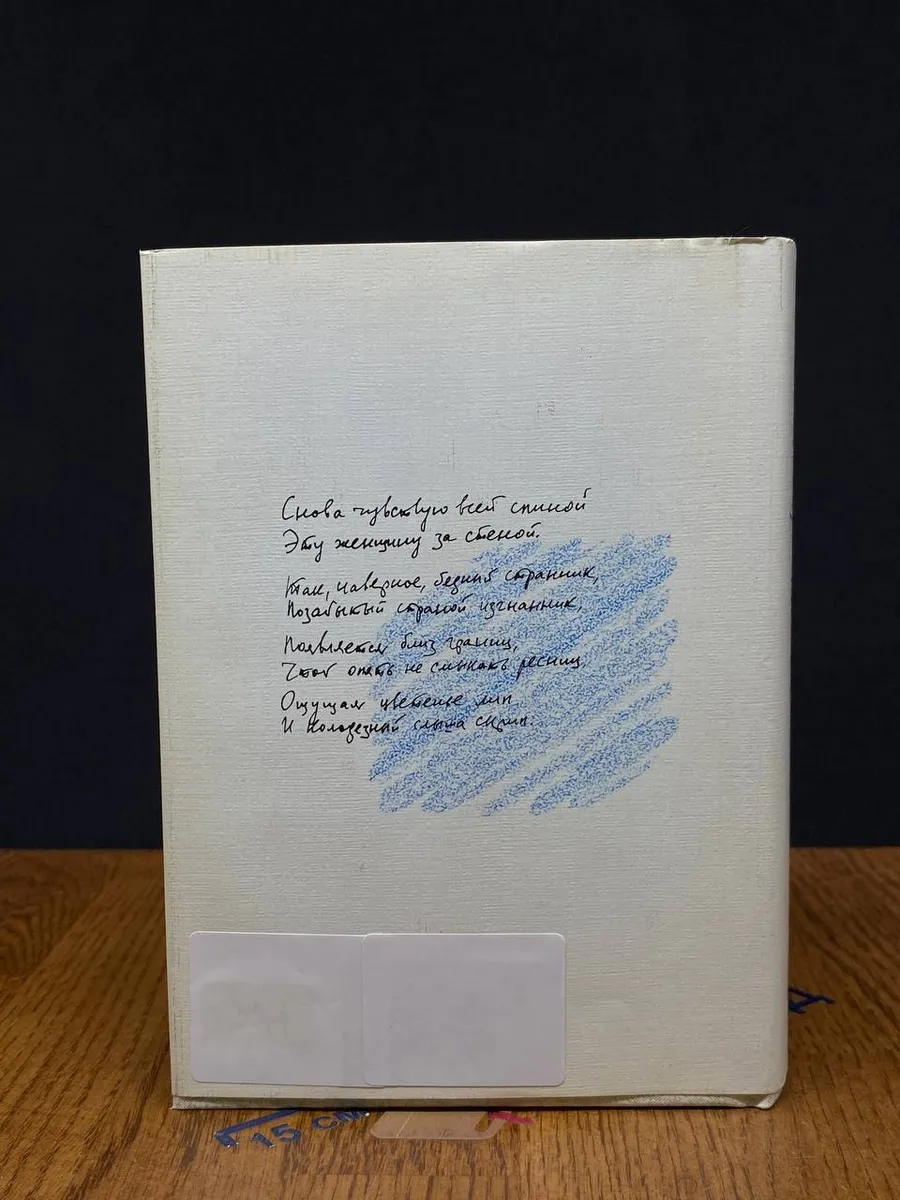 Снова чувствую всей спиной
Эту женщину за стеной.
Так, наверное, бедный странник,
Позабытый страной изгнанник,
Появляется близ границ,
Чтоб опять не смыкать ресниц
Ощущая цветенье лип
И колодезный слыша скрип.
15 см